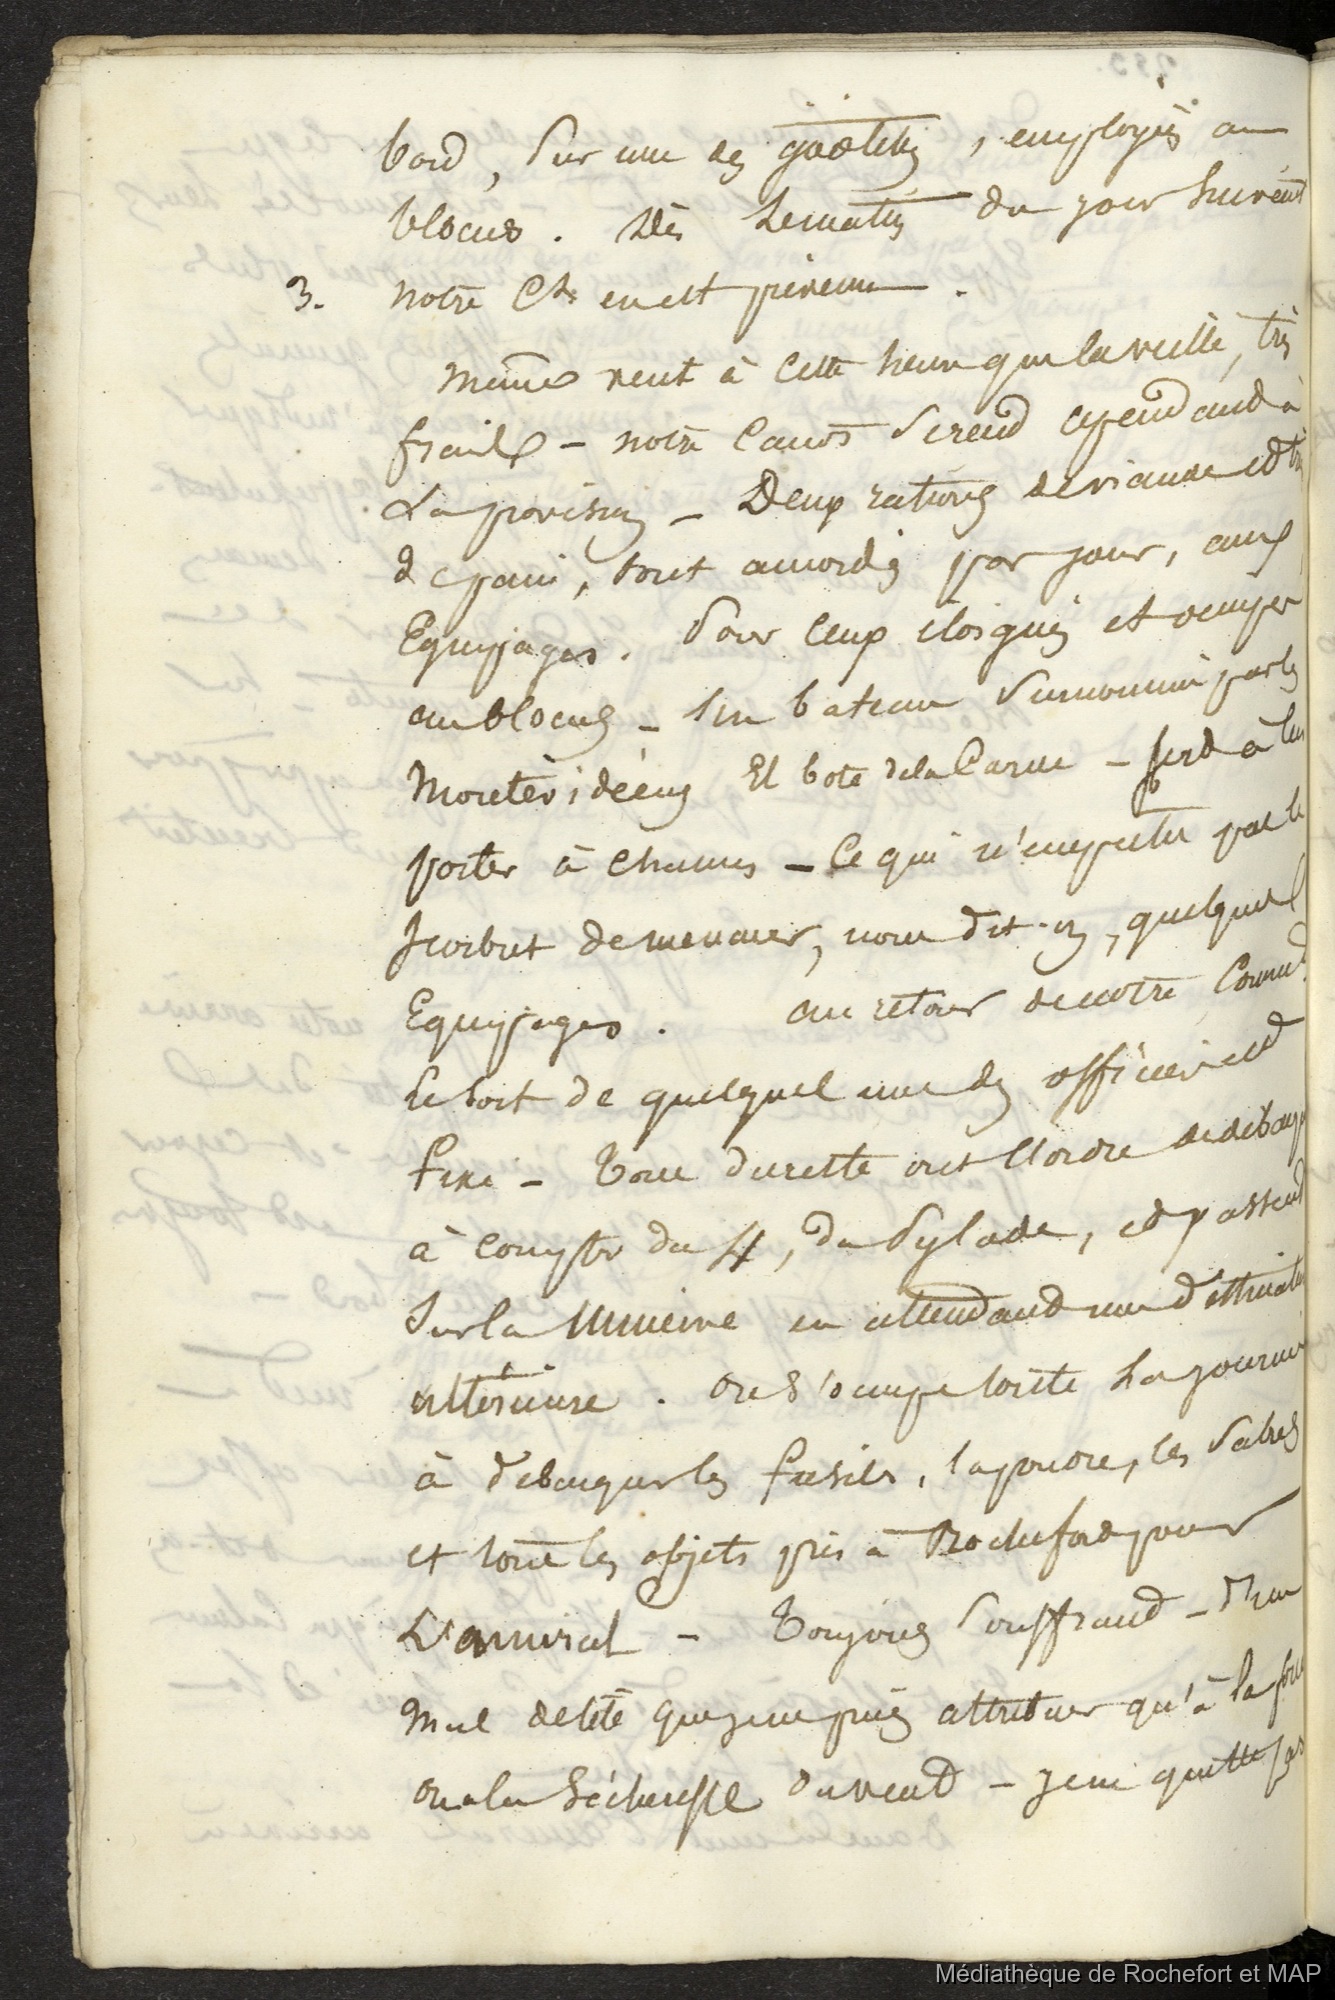 bord, sur une des goëlettes, employés au
blocus. Dès le matin du jour suivant
3. notre Ct en est prévenu.
même vent à cette heure que la veille, très
frais - notre canot se rend cependand à
La provision - Deux rations de viande et
de pain, sont accordés par jour, aux
Equipages. Pour ceux éloignés et occuper
au blocus - un bateau surnommé par les
Montévidéens El bote de la Carne - serd à leur
porter à chacuns - Ce qui n'empeche pas le
scorbut de menacer, nous dit-on, quelques
Equipages. au retour de notre Commdt
Le sort de quelques uns des officiers est
fixé - Tous du reste ont l'ordre de débarquer
à compter du 4, du Pylade, et passent
Sur la Minerve en attendand une déstination
ultérieure. on s'occupe toute La journée
à débarquer les fusils, la poudre, les Sabres
et tous les objets pris à Rocheford pour
L'amiral - Toujours souffrand - D'un
mal de tête que je ne puis attribuer qu'à la force
ou a la Sécheresse du vend - je ne quitte pas
Médiathèque de Rochefort et MAP